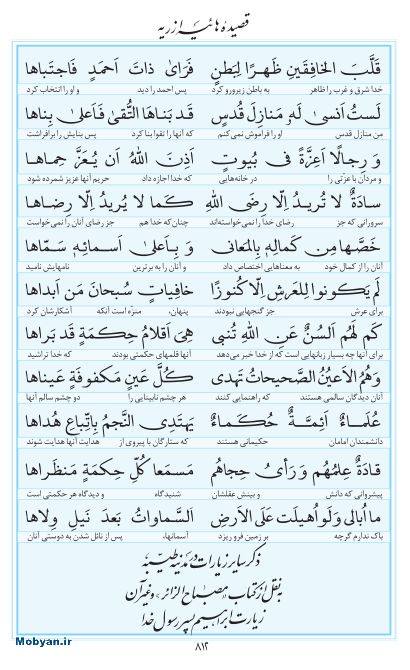 قصیدهٔ هائیه ازریه
قَلَّبَ الخافِقَینِ ظَهرًا لِبَطنٍ فَرَأیٰ ذاتَ اَحمَدٍ فَاجتَباها
خدا شرق و غرب را ظاهر به باطن زیرورو کرد پس احمد را دید و او را انتخاب کرد
لَستُ اَنسیٰ لَهُ مَنازِلَ قُدسٍ قَد بَناهَا التُّقیٰ فَاَعلیٰ بِناها
من منازل قدس او را فراموش نمی‌کنم که آنها را تقوا بنا کرد پس بنایش را برافراشت
وَ رِجالًا اَعِزَّةً فی بُیوتٍ اَذِنَ اللّٰهُ اَن یُعَزَّ حِماها
و مردان با عزّتی را در خانه‌هایی که خدا اجازه داد حریم آنها عزیز شمرده شود
سادَةٌ لا تُریدُ اِلّا رِضَی اللّٰهِ کَما لا یُریدُ اِلّا رِضاها
سرورانی که جز رضای خدا را نمی‌خواسته‌اند چنان‌که خدا هم جز رضای آنان را نمی‌خواست
خَصَّها مِن کَمالِهِ بِالمَعانی وَ بِاَعلیٰ اَسمائِهِ سَمّاها
آنان را از کمال خود به معناهایی اختصاص داد و آنان را به برترین نامهایش نامید
لَم یَکونوا لِلعَرشِ اِلّا کُنوزًا خافِیاتٍ سُبحانَ مَن اَبداها
برای عرش، جز گنجهایی نبودند پنهان، منزّه است آنکه آشکارشان کرد
کَم لَهُم اَلسُنٌ عَنِ اللّٰهِ تُنبی هِیَ اَقلامُ حِکمَةٍ قَد بَراها
برای آنها چه بسیار زبانهایی است که از خدا خبر می‌دهد آنها قلمهای حکمتی بودند که خدا تراشید
وَ هُمُ الاَعیُنُ الصَّحیحاتُ تَهدی کُلَّ عَینٍ مَکفوفَةٍ عَیناها
آنان دیدگان سالمی هستند که راهنمایی کنند هر چشم نابینایی را دو چشم سالم آنها
عُلَماءٌ اَئِمَّةٌ حُکَماءٌ یَهتَدِی النَّجمُ بِاتِّباعِ هُداها
دانشمندان امامان حکیمانی هستند که ستارگان با پیروی از هدایت آنها هدایت شوند
قادَةٌ عِلمُهُم وَ رَأیُ حِجاهُم مَسمَعا کُلِّ حِکمَةٍ مَنظَراها
پیشروانی که دانش و بینش عقلشان شنیدگاه و دیدگاه هر حکمتی است
ما اُبالی وَلَو اُهیلَت عَلَی الاَرضِ اَلسَّماواتُ بَعدَ نَیلِ وِلاها
باک ندارم گرچه بر زمین فرو ریزد آسمانها، پس از نائل شدن به دوستی آنان
ذکر سایر زیارات در مدینه طیّبه
به نقل از کتاب «مصباح الزائر» و غیر آن
زیارت ابراهیم پسر رسول خدا
Mobyan.ir
۸۱۲